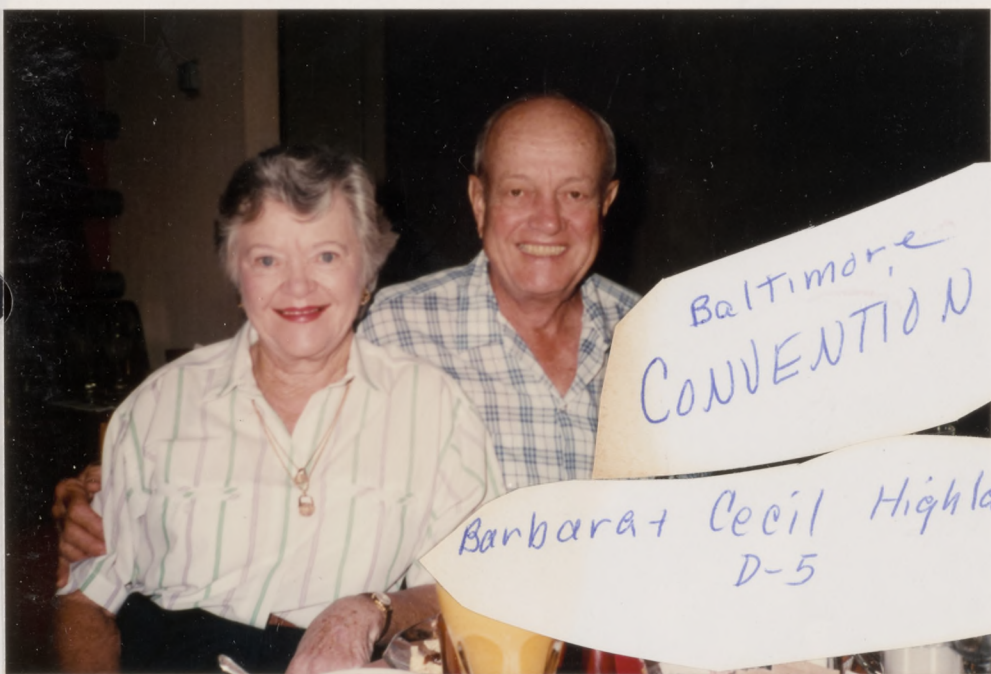 Baltimore
CONVENTION
Barbara + Cecil Highla
D-5